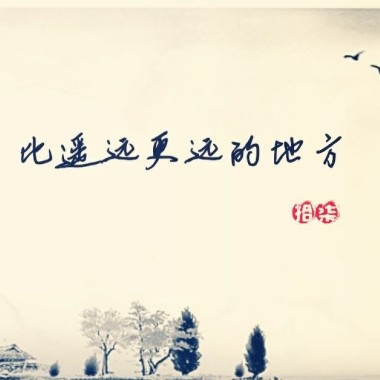 比遥远更远的地方
拾柒